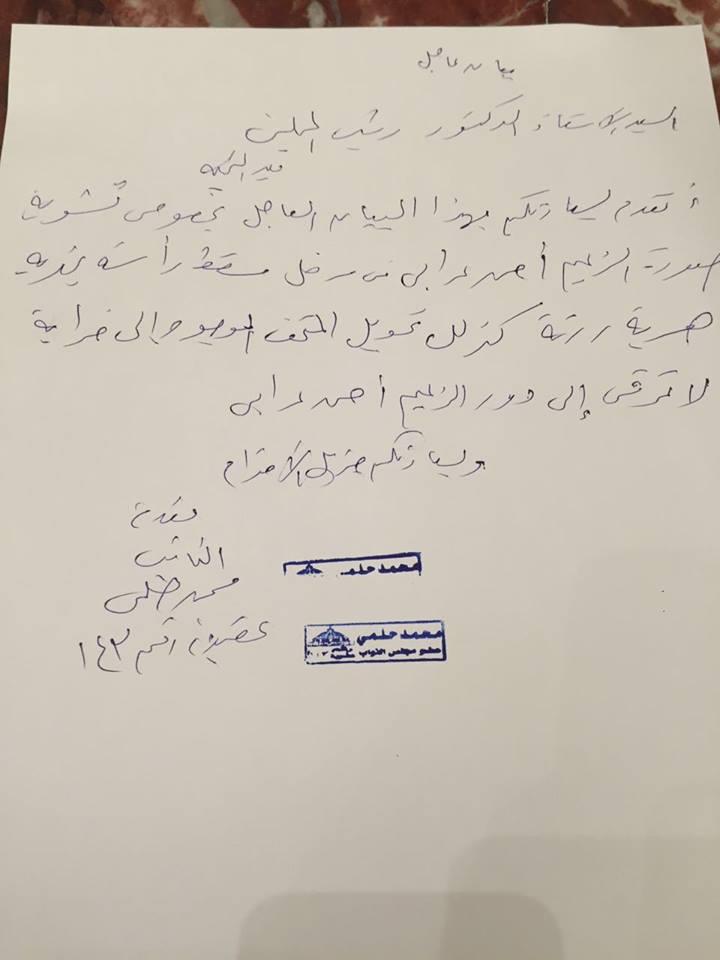 بيان عاجل
السيد الاستاذ الدكتور رئيس المجلس
قيد التحيه
أتقدم لسيادتكم بهذا البيان العاجل بخصوص تشويه
صورة الزعيم أحمد عرابى فى مدخل مسقط رأسه بقريه
هرية رزنة كذلك تحويل المتحف الموجود إلى خرابة
لا ترقى إلى دور الزعيم أحمد عرابى
ولسيادتكم جزيل الاحترام
مقدمة
النائب
محمد حلمى
عضوية رقم ١٤٣
محمد حلمى
محمد حلمي
عضو مجلس النواب